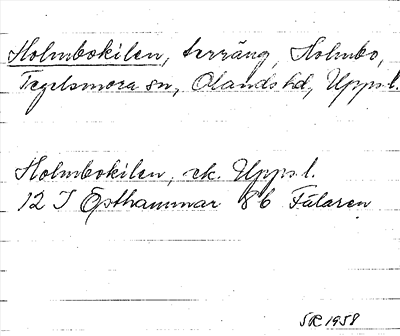 Holmbokilen, terräng, Holmbo,
Tegelsmora sn, Olands hd, Upps. l.
Holmbokilen, ek. Upps. l.
12 I Östhammar 8 b Fälaren
SR 1958